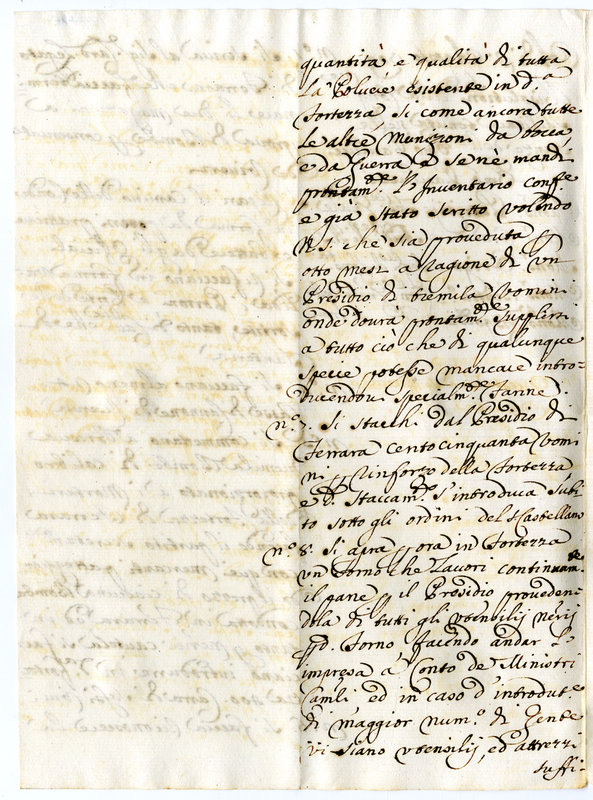 quantità e qualità di tutta
la Poluere esistente in d.ª
Fortezza si come ancora tutte
le altre munizioni da bocca
e da Guerra e se nè mandi
prontam.te l'Inventario conf.e
e già stato scritto volendo
N.S. che sia proveduta p
otto mesi a ragione di vn
Presidio di tremila vomini
onde dourà prontam.te supplirsi
a tutto ciò che di qualunque
specie potesse mancare intro-
ducendoui specialm.te farine.
n.º 7. Si stacchi dal Presidio di
Ferrara cento cinquanta vomi
ni p rinforzo della Fortezza
e d.º staccam.to s'introduca subi
to sotto gli ordini del Castellano
n.º 8. Si apra p ora in Fortezza
vn forno che lavori continuam.te
il pane p il Presidio proveden-
dola di tutti gli vtensilij neces.rij
p d.º forno, facendo andar l'
impresa a conto de Ministri
Cam.li ed in caso d'introdut.e
di maggior num.º di Gente
vi siano vtensilij, ed attrezzi
suffi-